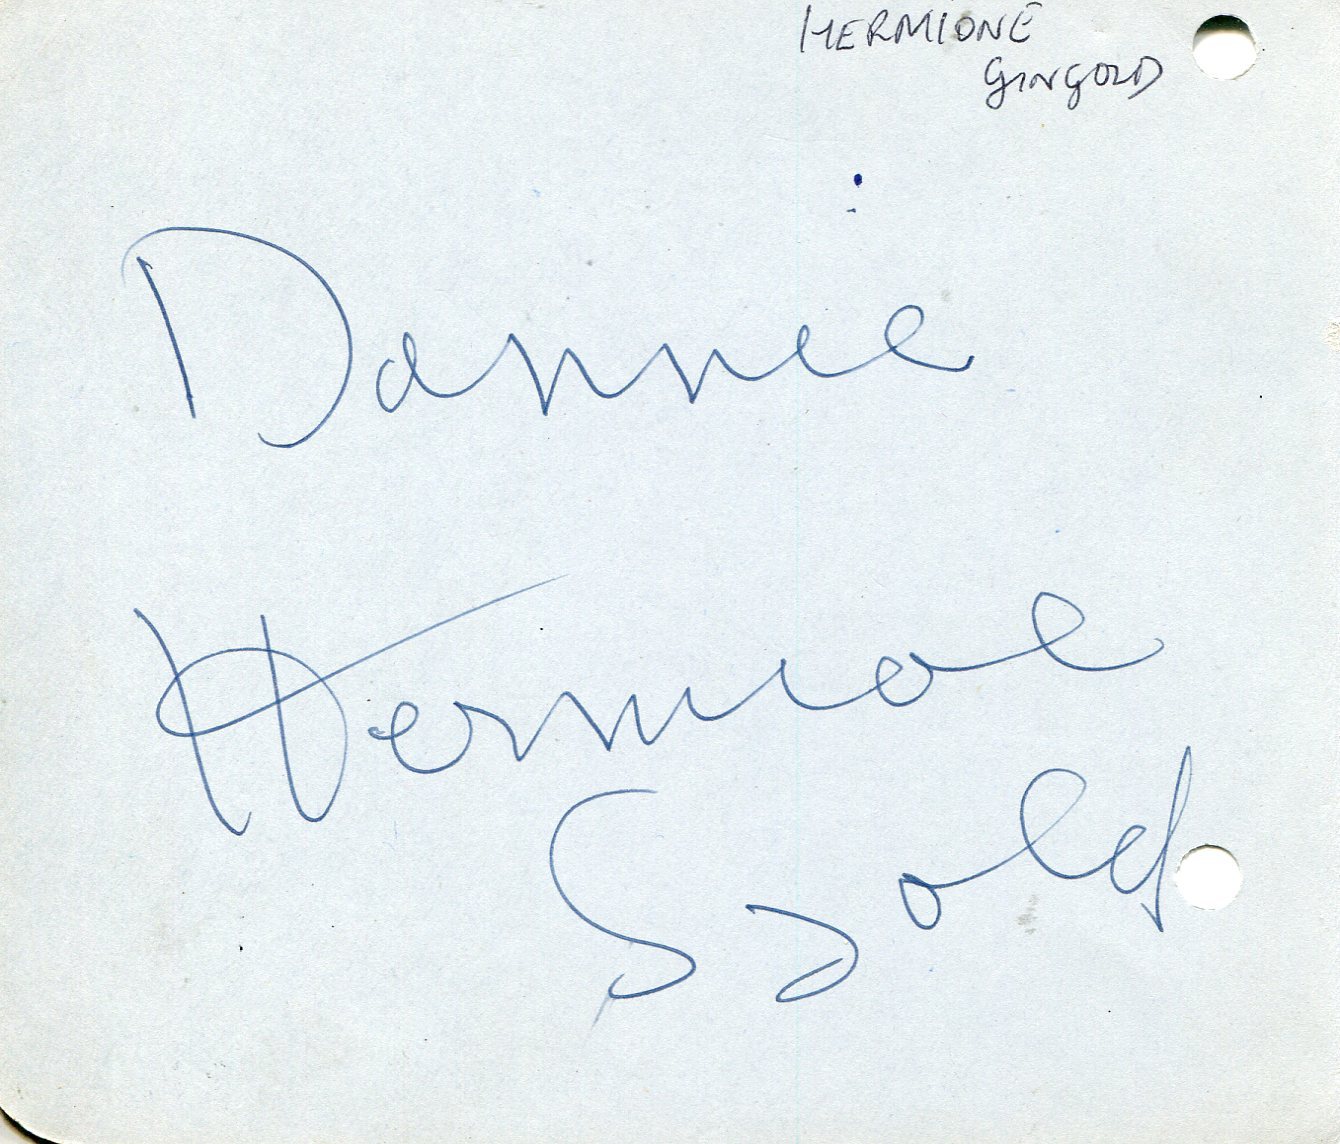 HERMIONE
GINGOLD
Dannie
Hermione